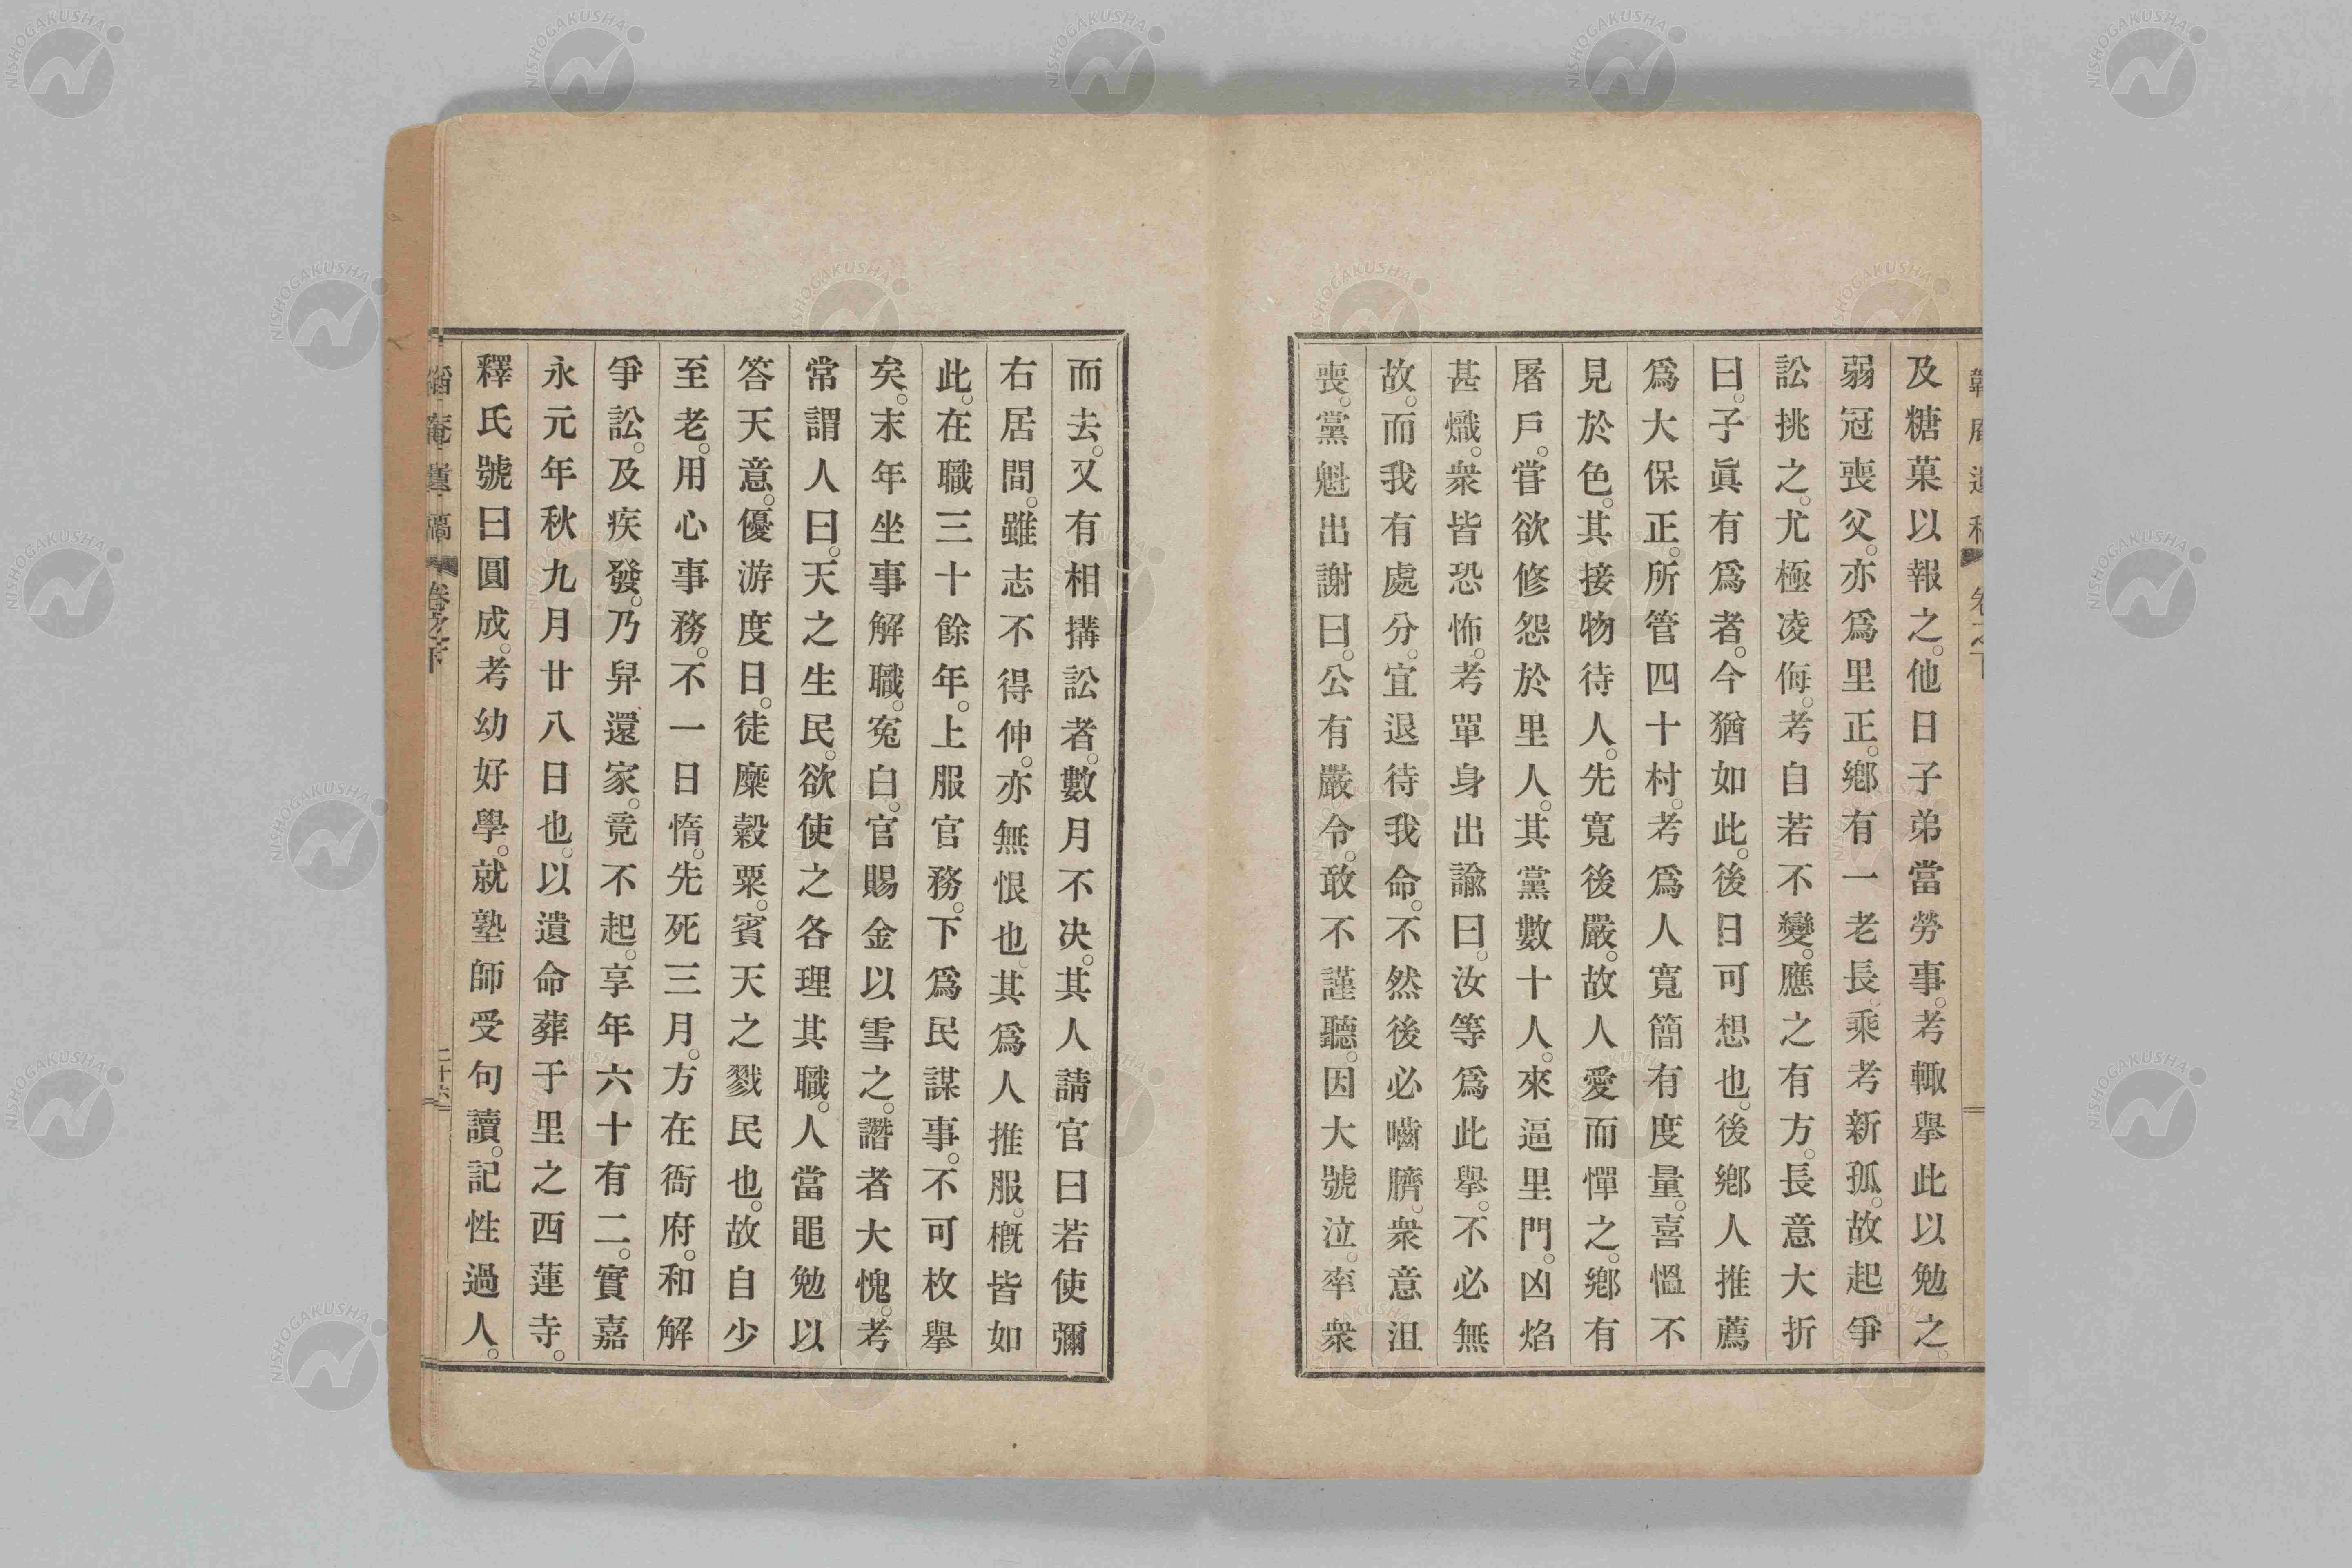 及糖菓以報之。他日子弟當勞事。考輙擧此以勉之
弱冠喪父。亦爲里正。鄕有一老長乘考新孤。故起爭
訟挑之。尤極凌侮。考自若不變。應之有方。長意大折
曰。子眞有爲者。今猶如此。後日可想也。後鄕人推薦
爲大保正。所管四十村。考爲人寬簡有度量。喜慍不
見於色。其接物待人。先寬後嚴。故人愛而憚之。鄕有
屠戶。嘗欲修怨於里人。其黨數十人。來逼里門。凶焰
甚熾。衆皆恐怖。考單身出諭曰。汝等爲此擧。不必無
故。而我有處分。宜退待我命。不然後必嚙臍。衆意沮
喪。黨魁出謝曰。公有嚴令。敢不謹聽。因大號泣。率衆
而去。又有相搆訟者。數月不决。其人請官曰若使彌
右居間。雖志不得伸。亦無恨也。其爲人推服。槪皆如
此。在職三十餘年。上服官務。下爲民謀事。不可枚擧
矣。末年坐事解職。寃白。官賜金以雪之。譖者大愧。考
常謂人曰。天之生民。欲使之各理其職。人當黽勉以
答天意。優游度日。徒糜穀粟。賓天之戮民也。故自少
至老。用心事務。不一日惰。先死三月。方在衙府。和解
爭訟。及疾發。乃舁還家。竟不起。享年六十有二。實嘉
永元年秋九月廿八日也。以遺命葬于里之西蓮寺。
釋氏號曰圓成。考幼好學。就塾師受句讀。記性過人。
遺稿 卷之下 二十六